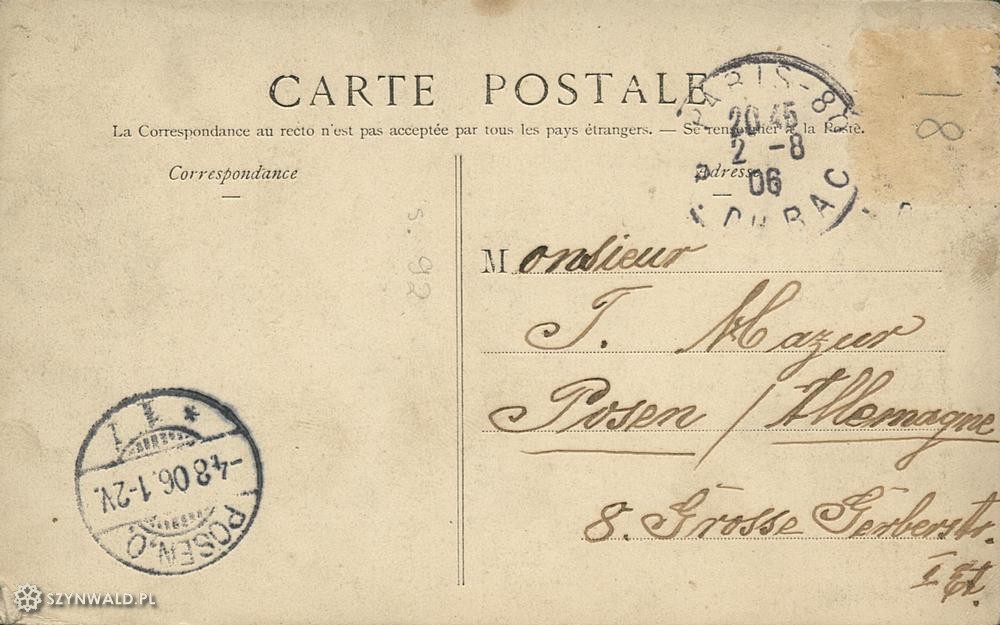 CARTE POSTALE
La Correspondance au recto n'est pas acceptée par tous les pays étrangers. — Se renseigner à la Poste.
Correspondance
Adresse
PARIS-80
20 45
2 -8
06
R. DU BAC
18
s. 92
Monsieur
T. Mazur
Posen / Allemagne
8. Grosse Gerberstr.
I Et.
* 1 1
-4.8 06.1-2V.
POSEN.O.
SZYNWALD.PL